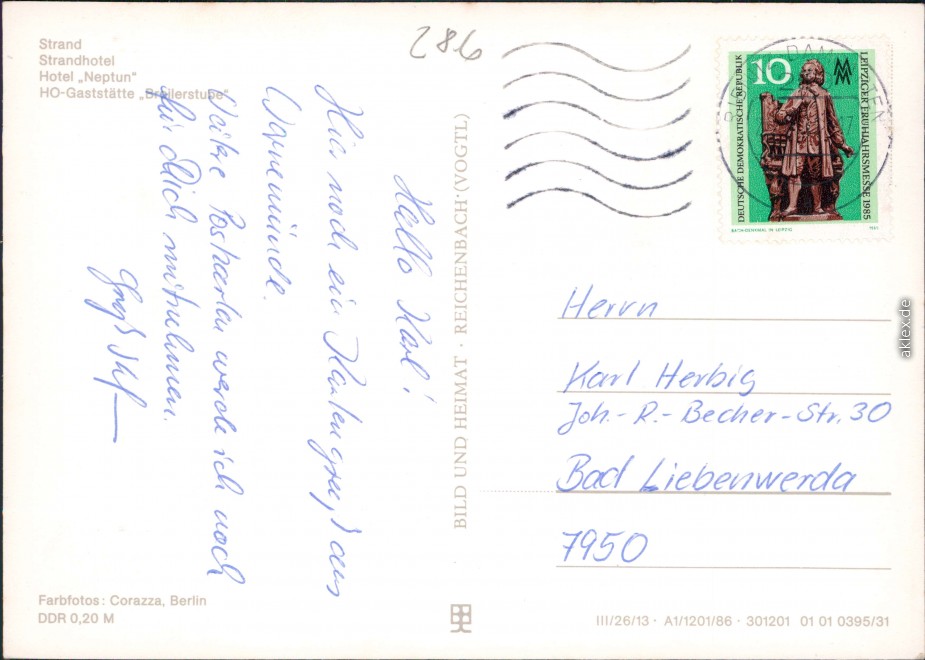 Strand
Strandhotel
Hotel „Neptun"
HO-Gaststätte „Broilerstube"
286
Hello Karl!
Hier noch ein Kartengruß aus
Warnemünde.
Weitere Postkarten werde ich noch
für Dich mitnehmen.
Gruß
BILD UND HEIMAT · REICHENBACH (VOGTL)
DEUTSCHE DEMOKRATISCHE REPUBLIK
10
MM
LEIPZIGER FRÜHJAHRSMESSE 1985
BACH-DENKMAL IN LEIPZIG
1985
Herrn
Karl Herbig
Joh.-R.-Becher-Str. 30
Bad Liebenwerda
7950
Farbfotos: Corazza, Berlin
DDR 0,20 M
III/26/13 · A1/1201/86 · 301201 01 01 0395/31
aklex.de